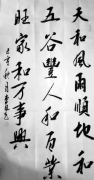 天和風雨順地和
五谷豐人和百業
旺家和万事興